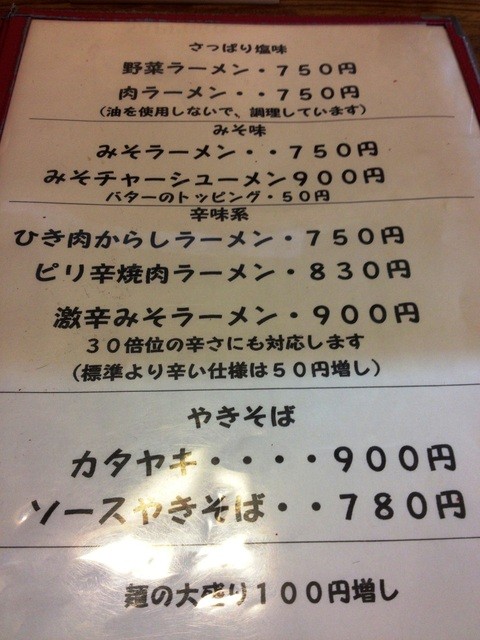 さっぱり塩味
野菜ラーメン・７５０円
肉ラーメン・・７５０円
（油を使用しないで、調理しています）
みそ味
みそラーメン・・７５０円
みそチャーシューメン９００円
バターのトッピング・５０円
辛味系
ひき肉からしラーメン・７５０円
ピリ辛焼肉ラーメン・８３０円
激辛みそラーメン・９００円
３０倍位の辛さにも対応します
（標準より辛い仕様は５０円増し）
やきそば
カタヤキ・・・・９００円
ソースやきそば・・７８０円
麺の大盛り１００円増し